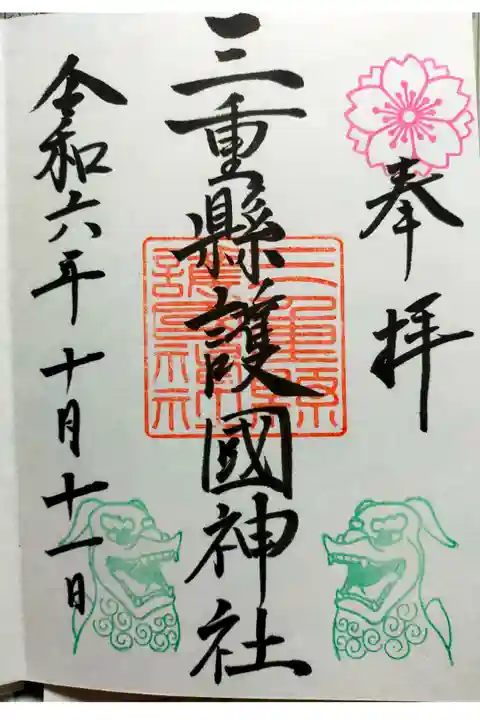 奉拝
三重縣護國神社
三重縣護國神社
令和六年十月十一日